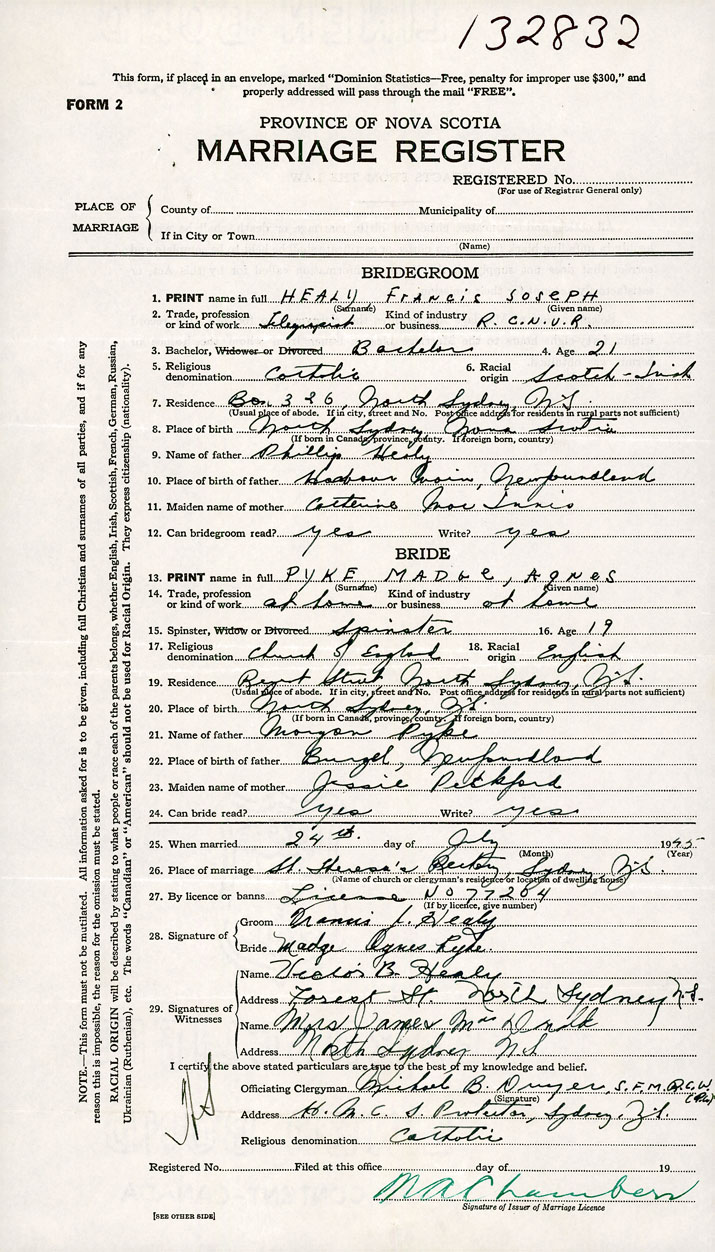 132832
This form, if placed in an envelope, marked "Dominion Statistics—Free, penalty for improper use $300," and
properly addressed will pass through the mail "FREE".
FORM 2
PROVINCE OF NOVA SCOTIA
MARRIAGE REGISTER
REGISTERED No.
(For use of Registrar General only)
PLACE OF MARRIAGE
County of Municipality of
If in City or Town
(Name)
BRIDEGROOM
1. PRINT name in full HEALY, FRANCIS JOSEPH
(Surname) (Given name)
2. Trade, profession or kind of work Telegraphist Kind of industry or business R.C.N.V.R.
3. Bachelor, Widower or Divorced Bachelor 4. Age 21
5. Religious denomination Catholic 6. Racial origin Scotch-Irish
7. Residence Box 326, North Sydney, N.S.
(Usual place of abode. If in city, street and No. Post office address for residents in rural parts not sufficient)
8. Place of birth North Sydney Nova Scotia
(If born in Canada, province, county. If foreign born, country)
9. Name of father Phillip Healy
10. Place of birth of father Harbour Main, Newfoundland
11. Maiden name of mother Catherine Mac Innis
12. Can bridegroom read? yes Write? yes
BRIDE
13. PRINT name in full PYKE, MADGE, AGNES
(Surname) (Given name)
14. Trade, profession or kind of work at home Kind of industry or business at home
15. Spinster, Widow or Divorced Spinster 16. Age 19
17. Religious denomination Church of England 18. Racial origin English
19. Residence Street North Sydney, N.S.
(Usual place of abode. If in city, street and No. Post office address for residents in rural parts not sufficient)
20. Place of birth North Sydney, N.S.
(If born in Canada, province, county. If foreign born, country)
21. Name of father Morgan Pyke
22. Place of birth of father Burgeo, Newfoundland
23. Maiden name of mother Jessie Peckford
24. Can bride read? yes Write? yes
25. When married 24th. day of July 1945
(Month) (Year)
26. Place of marriage St. Theresa's Rectory, Sydney, N.S.
(Name of church or clergyman's residence or location of dwelling house)
27. By licence or banns License No 77204
(If by licence, give number)
28. Signature of
Groom Francis J. Healy
Bride Madge Agnes Pyke.
29. Signatures of Witnesses
Name Victor B. Healy
Address Forest St. North Sydney N.S.
Name Mrs James
Address North Sydney N.S.
I certify the above stated particulars are true to the best of my knowledge and belief.
Officiating Clergyman Michael B. Dwyer, S.F.M.
(Signature)
Address H.M.C.S. Protector, Sydney, N.S.
Religious denomination Catholic
Registered No. Filed at this office day of 19
M A Chambers
Signature of Issuer of Marriage Licence
[SEE OTHER SIDE]
NOTE.—This form must not be mutilated. All information asked for is to be given, including full Christian and surnames of all parties, and if for any
reason this is impossible, the reason for the omission must be stated.
RACIAL ORIGIN will be described by stating to what people or race each of the parents belongs, whether English, Irish, Scottish, French, German, Russian,
Ukrainian (Ruthenian), etc. The words "Canadian" or "American" should not be used for Racial Origin. They express citizenship (nationality).